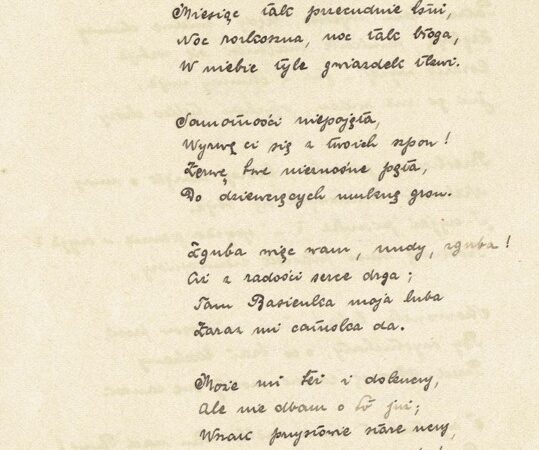 Miesiąc tak przecudnie lśni,
Noc rozkoszna, noc tak błoga,
W niebie tyle gwiazdek tkwi.
Samotności niepojęta,
Wyrwę ci się z twoich szpon!
Zerwę twe nieznośne pęta,
Do dziewczęcych mulknę gron.
Zguba więc wam, nudy, zguba!
Aż z radości serce drga;
Tam Basieńka moja luba
Zaraz mi całuska da.
Może mi też i dokuczy,
Ale nie dbam o to już;
Wszak przysłowie stare uczy,